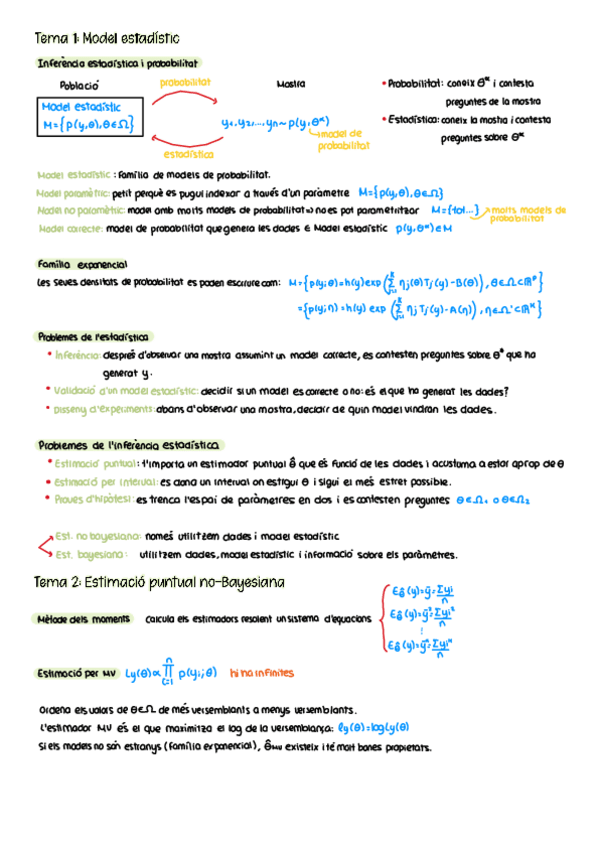 Tema 1: Model estadístic
Inferència estadística i probabilitat
Població
probabilitat
Mostra
Model estadístic
M={p(y,θ),θ∈Ω}
y₁,y₂,...,yn~p(y,θ*)
model de
probabilitat
estadística
• Probabilitat: coneix θ* i contesta
preguntes de la mostra
• Estadística: coneix la mostra i contesta
preguntes sobre θ*
Model estadístic: família de models de probabilitat.
Model paramètric: petit perquè es pugui indexar a través d'un paràmetre M={p(y,θ),θ∈Ω}
Model no paramètric: model amb molts models de probabilitat⇒ no es pot parametritzar M={tot...} molts models de
probabilitat
Model correcte: model de probabilitat que genera les dades ∈ Model estadístic p(y,θ*)∈M
Família exponencial
Les seves densitats de probabilitat es poden escriure com: M={p(y;θ)=h(y)exp(∑ηj(θ)Tj(y)-B(θ)),θ∈Ω⊂ℝᵖ}
={p(y;η)=h(y)exp(∑ηjTj(y)-A(η)),η∈Ω'⊂ℝᵏ}
Problemes de l'estadística
• Inferència: després d'observar una mostra assumint un model correcte, es contesten preguntes sobre θ* que ha
generat y.
• Validació d'un model estadístic: decidir si un model es correcte o no: és el que ha generat les dades?
• Disseny d'experiments: abans d'observar una mostra, decidir de quin model vindran les dades.
Problemes de l'inferència estadística
• Estimació puntual: t'importa un estimador puntual θ̂ que és funció de les dades i acustuma a estar aprop de θ
• Estimació per interval: es dona un interval on estigui θ i sigui el més estret possible.
• Proves d'hipòtesi: es trenca l'espai de paràmetres en dos i es contesten preguntes θ∈Ω₁ o θ∈Ω₂
Est. no bayesiana: només utilitzem dades i model estadístic
Est. bayesiana: utilitzem dades, model estadístic i informació sobre els paràmetres.
Tema 2: Estimació puntual no-Bayesiana
Mètode dels moments Calcula els estimadors resolent un sistema d'equacions
Eθ̂(y)=ȳ=∑yi/n
Eθ̂(y)=ȳ²=∑yi²/n
⋮
Eθ̂(y)=ȳᵏ=∑yiᵏ/n
Estimació per MV Ly(θ)∝∏p(yi;θ) n i=1 hi ha infinites
Ordena els valors de θ∈Ω de més versemblants a menys versemblants.
L'estimador MV és el que maximitza el log de la versemblança: ly(θ)=logLy(θ)
Si els models no són estranys (família exponencial), θ̂MV existeix i té molt bones propietats.